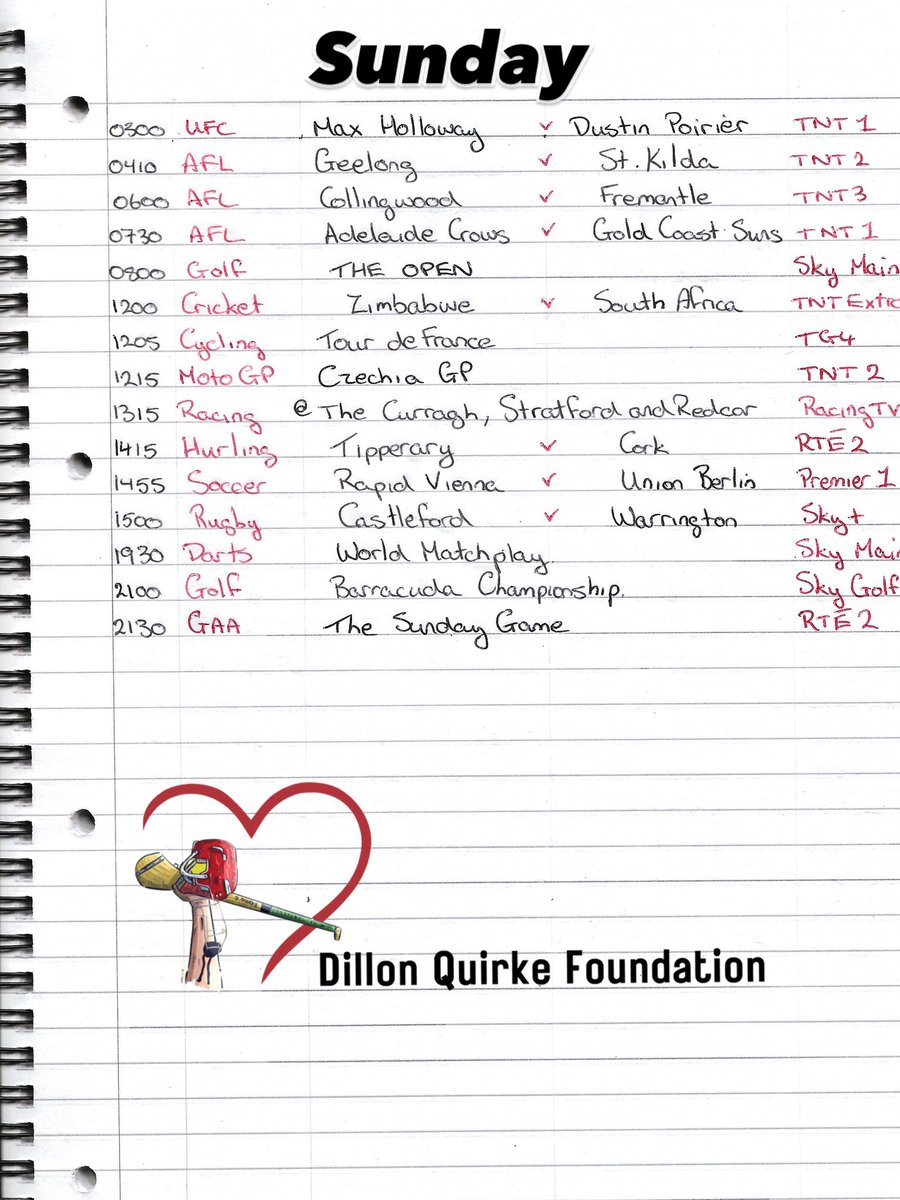 Sunday
0300 UFC Max Holloway v Dustin Poirier TNT 1
0410 AFL Geelong v St. Kilda TNT 2
0600 AFL Collingwood v Fremantle TNT 3
0730 AFL Adelaide Crows v Gold Coast Suns TNT 1
0800 Golf THE OPEN Sky Main
1200 Cricket Zimbabwe v South Africa TNT Extra
1205 Cycling Tour de France TG4
1215 Moto GP Czechia GP TNT 2
1315 Racing @ The Curragh, Stratford and Redcar Racing TV
1415 Hurling Tipperary v Cork RTÉ 2
1455 Soccer Rapid Vienna v Union Berlin Premier 1
1500 Rugby Castleford v Warrington Sky+
1930 Darts World Matchplay Sky Main
2100 Golf Barracuda Championship. Sky Golf
2130 GAA The Sunday Game RTÉ 2
Dillon Quirke Foundation